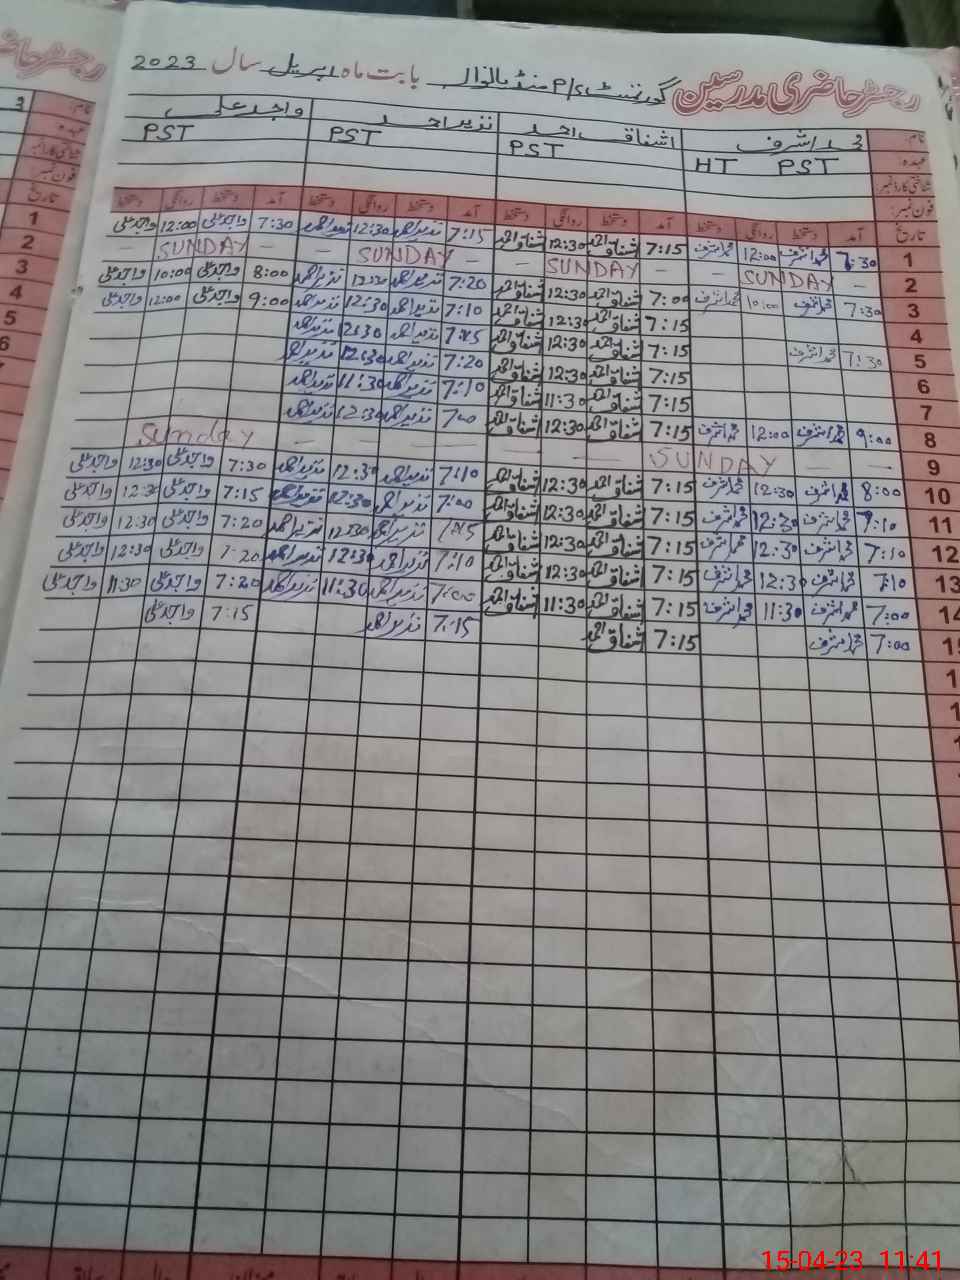 رجسٹر حاضری مدرسین گورنمنٹ P/S منڈیالنوالہ بابت ماہ اپریل سال 2023
نام: محمد اشرف اشفاق احمد نذیر احمد واجد علی
عہدہ HT PST PST PST PST
شناختی کارڈ نمبر
فون نمبر:
تاریخ آمد دستخط روانگی دستخط آمد دستخط روانگی دستخط آمد دستخط روانگی دستخط آمد دستخط روانگی دستخط
1 6:30 محمد اشرف 12:00 محمد اشرف 7:15 اشفاق احمد 12:30 اشفاق احمد 7:15 نذیر احمد 12:30 نذیر احمد 7:30 واجد علی 12:00 واجد علی
2 – SUNDAY – – SUNDAY – – SUNDAY – – SUNDAY –
3 7:30 محمد اشرف 10:00 محمد اشرف 7:00 اشفاق احمد 12:30 اشفاق احمد 7:20 نذیر احمد 12:30 نذیر احمد 8:00 واجد علی 10:00 واجد علی
4 7:15 اشفاق احمد 12:30 اشفاق احمد 7:10 نذیر احمد 12:30 نذیر احمد 9:00 واجد علی 12:00 واجد علی
5 7:30 محمد اشرف 7:15 اشفاق احمد 12:30 اشفاق احمد نذیر احمد 12:30 نذیر احمد
6 7:15 اشفاق احمد 12:30 اشفاق احمد 7:20 نذیر احمد 12:30 نذیر احمد
7 7:15 اشفاق احمد 11:30 اشفاق احمد 7:10 نذیر احمد 11:30 نذیر احمد
8 9:00 محمد اشرف 12:00 محمد اشرف 7:15 اشفاق احمد 12:30 اشفاق احمد 7:00 نذیر احمد 12:30 نذیر احمد
9 – – SUNDAY – – – – – – – Sunday
10 8:00 محمد اشرف 12:30 محمد اشرف 7:15 اشفاق احمد 12:30 اشفاق احمد 7:10 نذیر احمد 12:30 نذیر احمد 7:30 واجد علی 12:30 واجد علی
11 7:10 محمد اشرف 12:30 محمد اشرف 7:15 اشفاق احمد 12:30 اشفاق احمد 7:00 نذیر احمد 12:30 نذیر احمد 7:15 واجد علی 12:30 واجد علی
12 7:10 محمد اشرف 12:30 محمد اشرف 7:15 اشفاق احمد 12:30 اشفاق احمد نذیر احمد 12:30 نذیر احمد 7:20 واجد علی 12:30 واجد علی
13 7:10 محمد اشرف 12:30 محمد اشرف 7:15 اشفاق احمد 12:30 اشفاق احمد 7:10 نذیر احمد 12:30 نذیر احمد 7:20 واجد علی 12:30 واجد علی
14 7:00 محمد اشرف 11:30 محمد اشرف 7:15 اشفاق احمد 11:30 اشفاق احمد 7:00 نذیر احمد 11:30 نذیر احمد 7:20 واجد علی 11:30 واجد علی
7:00 محمد اشرف 7:15 اشفاق احمد 7:15 نذیر احمد 7:15 واجد علی
15-04-23 11:41